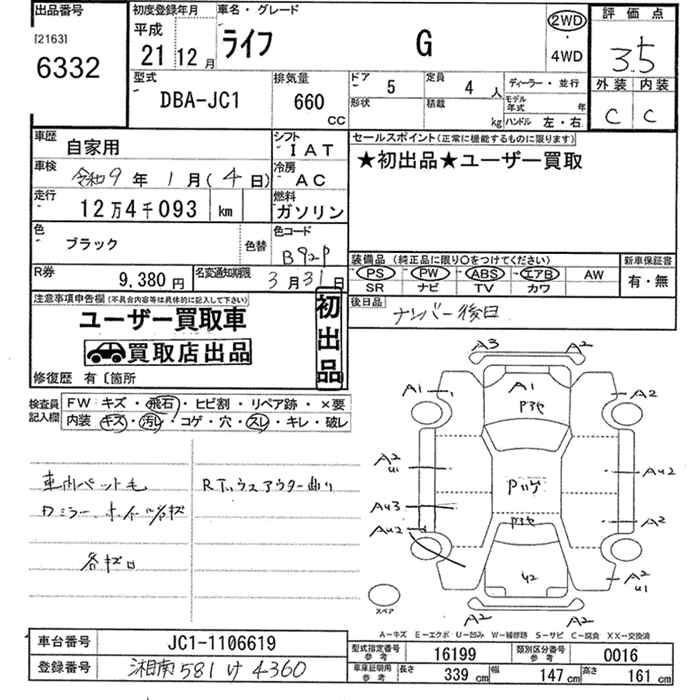 出品番号
[2163]
6332
初度登録年月
平成
21 12月
車名・グレード
ライフ G
2WD
・
4WD
評価点
3.5
外装 内装
C C
型式
DBA-JC1
排気量
660
CC
ドア
5
定員
4 人
形状
積載
kg
ディーラー・並行
モデル年式 年
ハンドル 左・右
車歴
自家用
シフト
IAT
車検
令和9年1月(4日)
冷房
AC
走行
12万4千093 km
燃料
ガソリン
色
ブラック
色替
色コード
B92P
R券
9,380円
名変通知期限
3月31日
セールスポイント(正常に機能するものに限ります)
★初出品★ユーザー買取
装備品(純正品に限り○をつけてください)
PS PW ABS エアB AW
SR ナビ TV カワ
新車保証書
有・無
後日品
ナンバー後日
注意事項申告欄(不具合内容等は具体的に記入して下さい)
ユーザー買取車
買取店出品
初出品
修復歴 有〔箇所
検査員記入欄
FW キズ・飛石・ヒビ割・リペア跡・×要
内装 キズ・汚レ・コゲ・穴・スレ・キレ・破レ
車内ペット毛
ミラー、ホイールキズ
各キズ凹
Rハウスアウター曲り
A3 A2
A1 A1 A2
P3ヤ
A2
U1
Pハゲ
AU2
AU3
AU2
P3ヤ
A2
U2
A2
U1
A2 A2
スペア
A−キズ E−エクボ U−凹み W−補修跡 S−サビ C−腐食 XX−交換済
車台番号
JC1-1106619
登録番号
湘南 581 け 4360
型式指定番号
参考
16199
類別区分番号
参考
0016
車庫証明用
参考
長さ 339 cm 幅 147 cm 高さ 161 cm